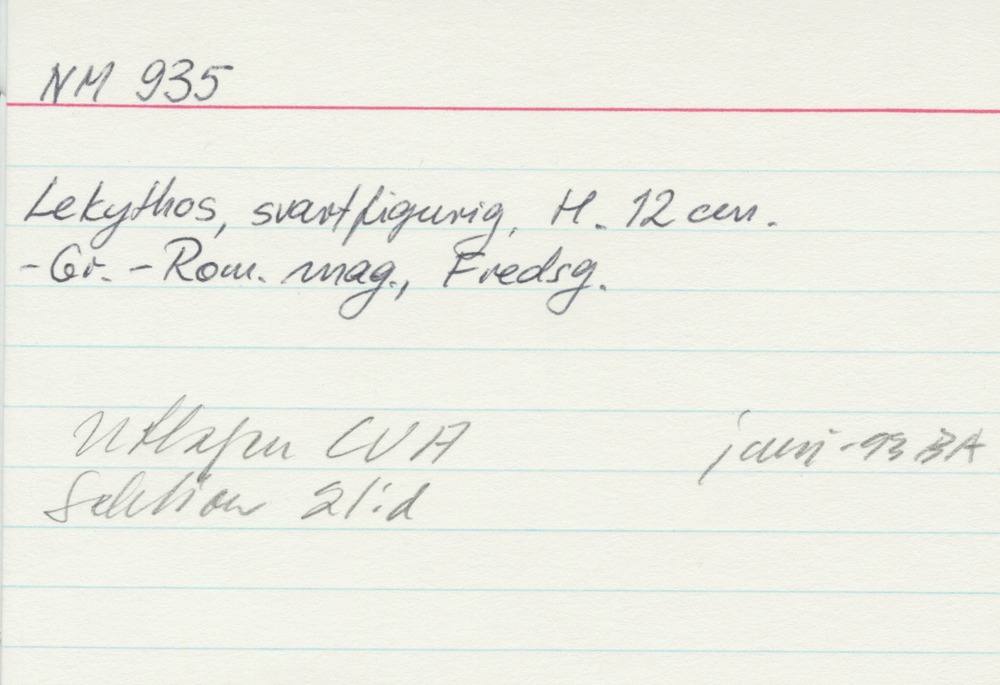 NM 935
Lekythos, svartfigurig, H. 12 cm.
- Gr. - Rom. mag., Fredsg.
Utlagen CVA juni -93 BA
Sektion